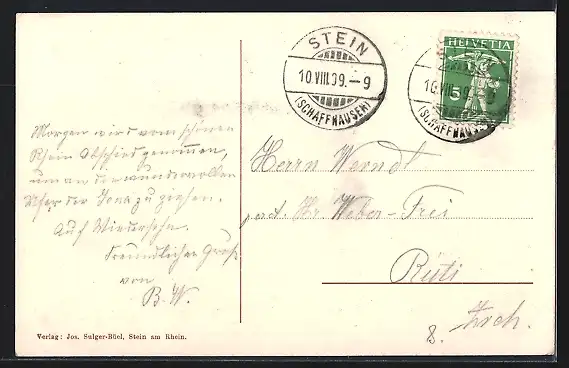 STEIN
10.VIII.09.–9
(SCHAFFHAUSEN)
HELVETIA
5
(SCHAFFHAUSEN)
Morgen wird vom schönen
Rhein Abschied genommen,
um an die wundervollen
Ufer der Jona zu ziehen.
Auf Wiedersehn.
Freundlicher Gruß
von
B. W.
Herrn Werndt
Hr. Weber-Frei
Rüti
Zrch.
Verlag: Jos. Sulger-Büel, Stein am Rhein.